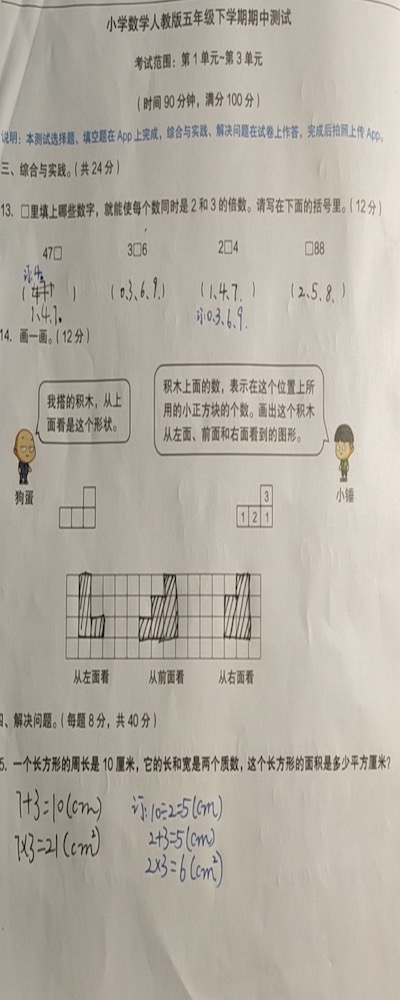 小学数学人教版五年级下学期期中测试
考试范围：第1单元~第3单元
（时间90分钟，满分100分）
说明：本测试选择题、填空题在App上完成，综合与实践、解决问题在试卷上作答，完成后拍照上传App。
三、综合与实践。（共24分）
13. □里填上哪些数字，就能使每个数同时是2和3的倍数。请写在下面的括号里。（12分）
47□ 3□6 2□4 □88
订：4.
（ ） （0.3.6.9.） （1.4.7.） （2.5.8.）
1.4.7. 订：0.3.6.9.
14. 画一画。（12分）
我搭的积木，从上
面看是这个形状。
积木上面的数，表示在这个位置上所
用的小正方块的个数。画出这个积木
从左面、前面和右面看到的图形。
狗蛋
小锤
3
1 2 1
从左面看 从前面看 从右面看
四、解决问题。（每题8分，共40分）
5. 一个长方形的周长是10厘米，它的长和宽是两个质数，这个长方形的面积是多少平方厘米？
7+3=10(cm)
7×3=21(cm²)
订：10÷2=5(cm)
2+3=5(cm)
2×3=6(cm²)